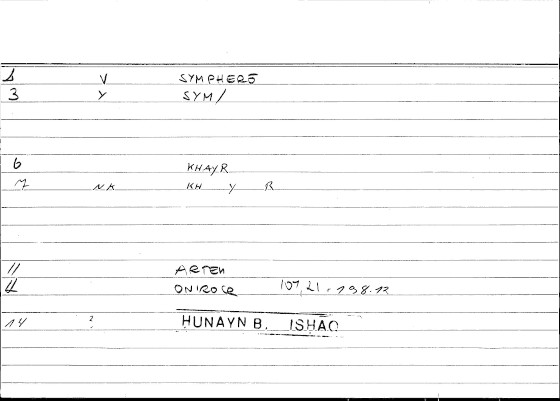 V SYMPHERŌ
3 Y SYM/
6 KHAYR
7 NK KH Y R
11 ARTEM
ONIROCR 107,21 - 198.12
14 ? HUNAYN B. ISHAQ